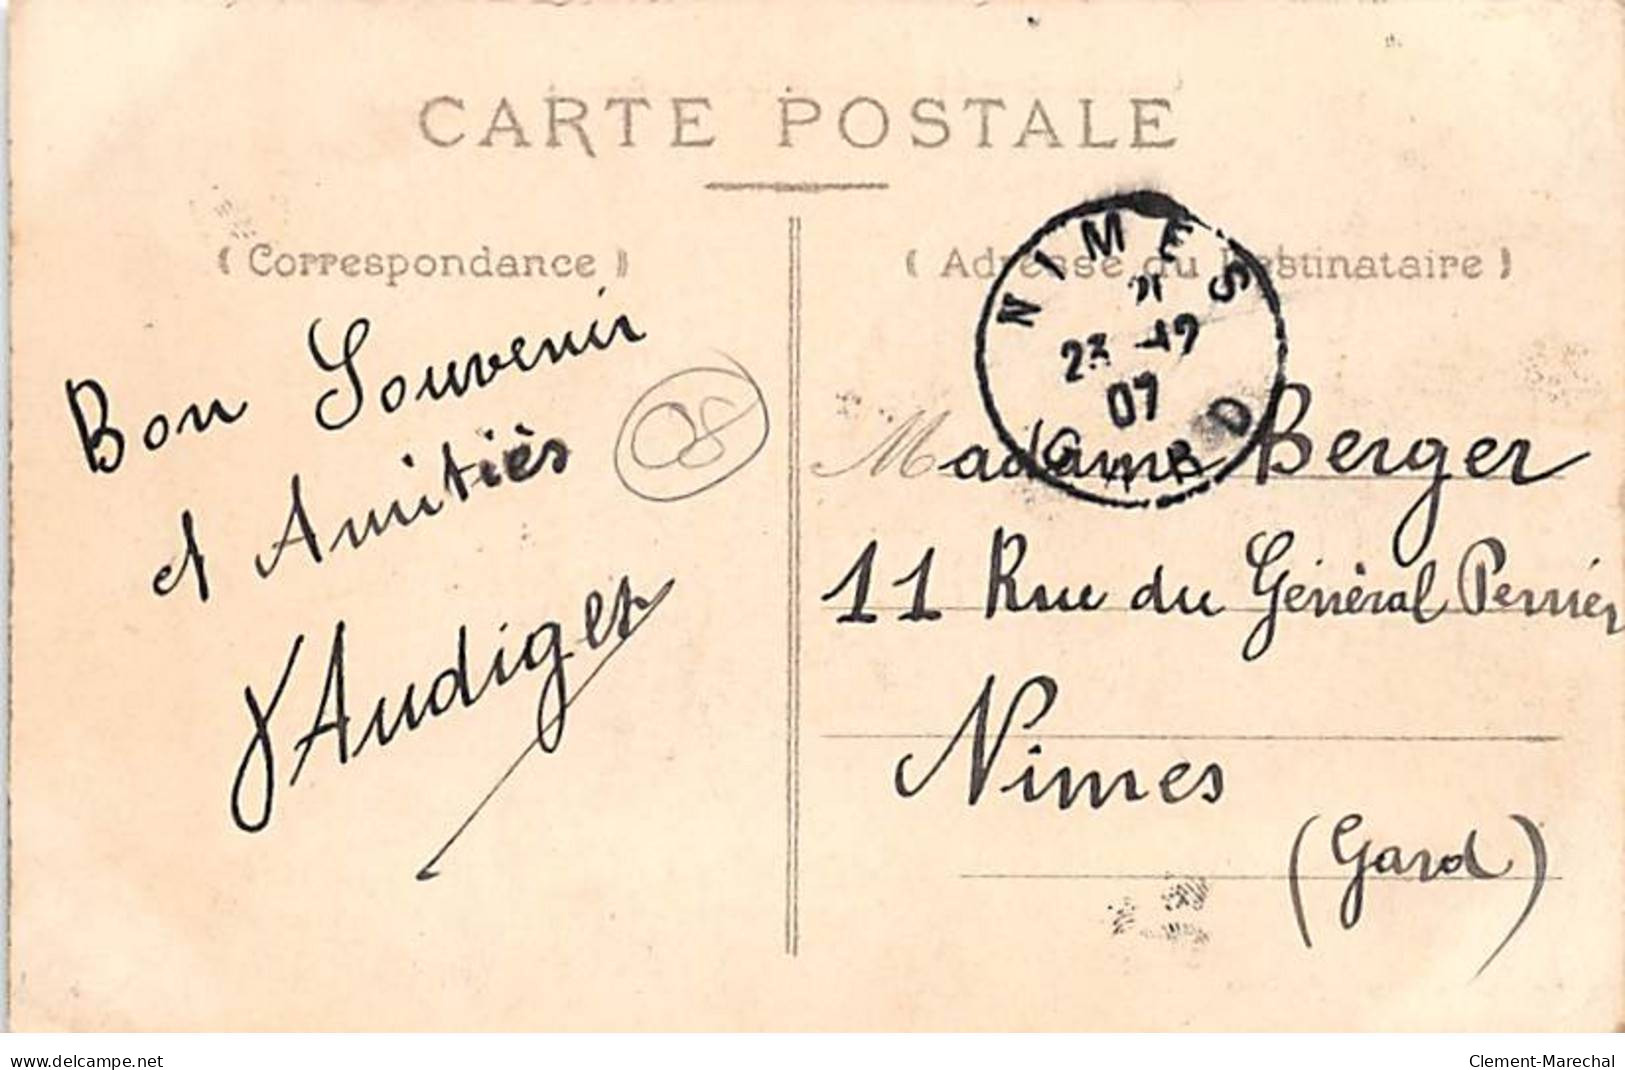 CARTE POSTALE
( Correspondance )
( Adresse du Destinataire )
NIMES
23 -12
07
GARD
Bon Souvenir
et Amitiés
Audiger
08
Madame Berger
11 Rue du Général Perrier
Nimes
(Gard)
www.delcampe.net
Clement-Marechal